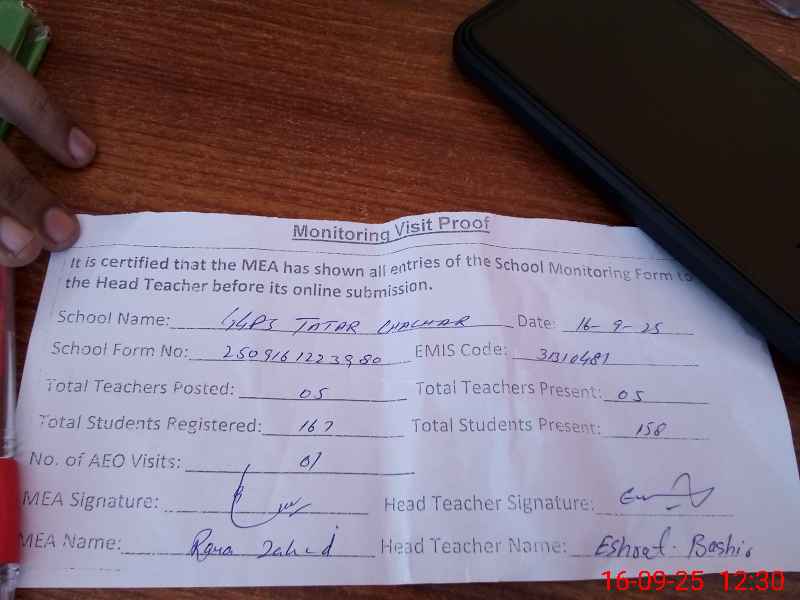 Monitoring Visit Proof
It is certified that the MEA has shown all entries of the School Monitoring Form to
the Head Teacher before its online submission.
School Name: GGPS TATAR CHACHAR Date: 16-9-25
School Form No: 2509161223980 EMIS Code: 31310481
Total Teachers Posted: 05 Total Teachers Present: 05
Total Students Registered: 167 Total Students Present: 158
No. of AEO Visits: 01
MEA Signature: Head Teacher Signature:
MEA Name: Rana Zahid Head Teacher Name: Eshrat Bashir
16-09-25 12:30